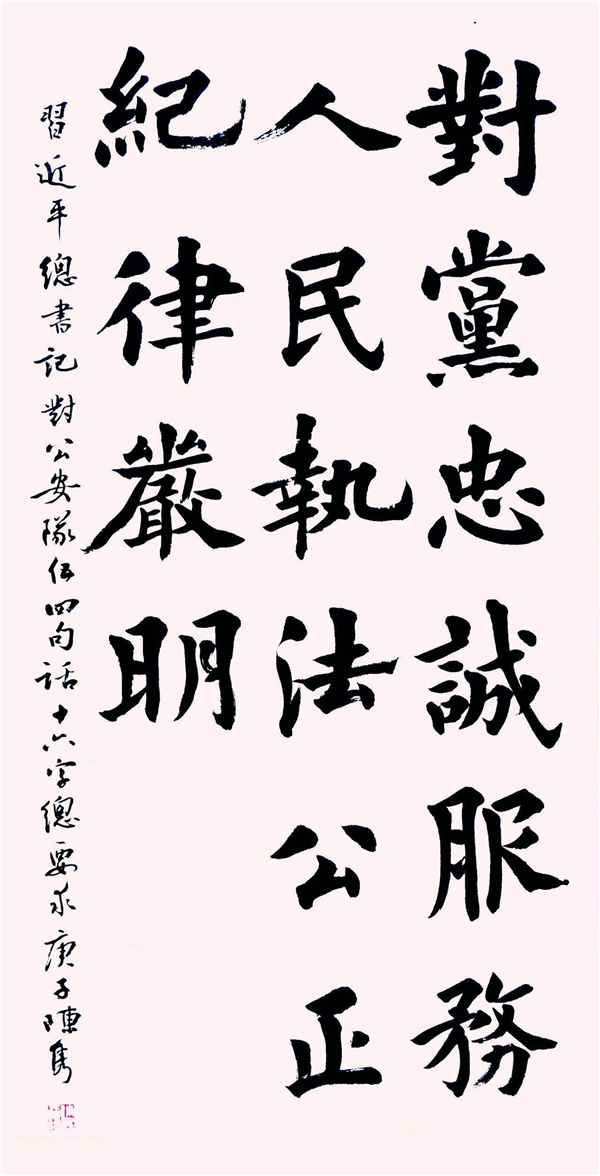 對黨忠誠服務
人民執法公正
紀律嚴明
習近平總書記對公安隊伍四句話十六字總要求庚子陳雋